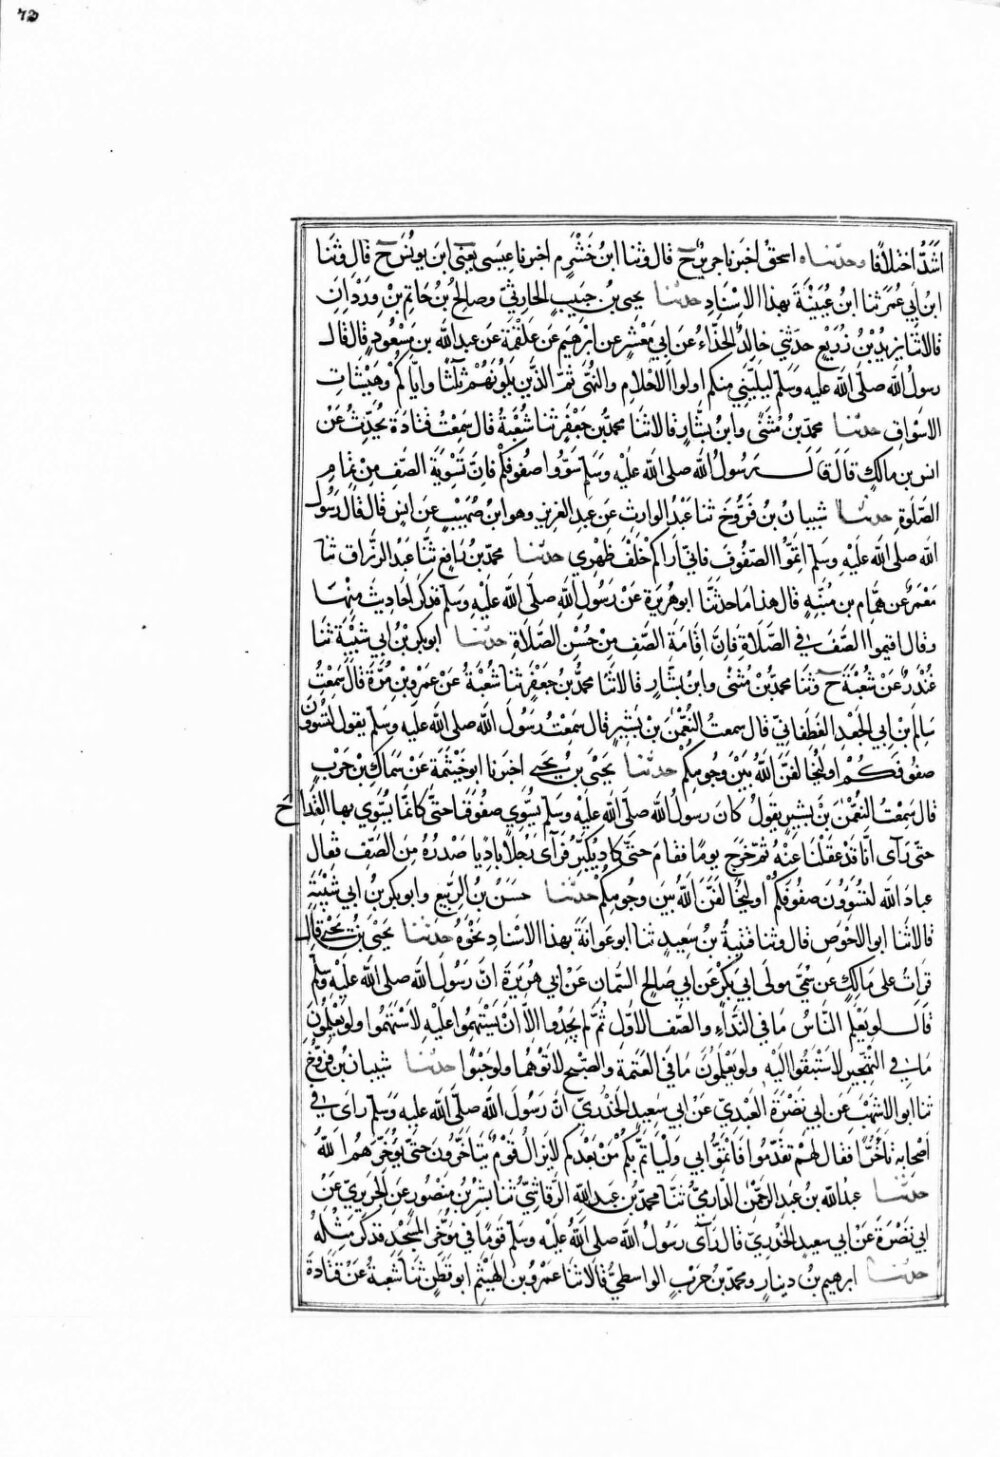 72
اَشَدُّ اخْتِلَافًا وحدثناه اسحق اخبرنا جرير ح قال وثنا ابن خَشْرَم اخبرنا عيسى يعنى ابن يونس ح قال وثنا
ابن ابي عمر ثنا ابن عيينة بهذا الاسناد حدثنا يحيى بن حبيب الحارثيّ وصالح بن حاتم بن وردان
قالا ثنا يزيد بن زريع حدثني خالد الحذّاء عن ابي معشر عن ابرهيم عن علقمة عن عبد الله بن مسعود قال قال
رسول الله صلى الله عليه وسلم ليلني منكم اولوا الاحلام والنهى ثم الذين يلونهم ثلثا واياكم وهيشات
الاسواق حدثنا محمد بن مثنى وابن بشار قالا ثنا محمد بن جعفر ثنا شعبة قال سمعت قتادة يحدّث عن
انس بن مالك قال قال رسول الله صلى الله عليه وسلم سوّوا صفوفكم فان تسوية الصف من تمام
الصلوة حدثنا شيبان بن فروخ ثنا عبد الوارث عن عبد العزيز وهو ابن صهيب عن انس قال قال رسول
الله صلى الله عليه وسلم اتمّوا الصفوف فاني اراكم خلف ظهري حدثنا محمد بن رافع ثنا عبد الرزاق ثنا
معمر عن همام بن منبه قال هذا ما حدثنا ابو هريرة عن رسول الله صلى الله عليه وسلم فذكر احاديث منها
وقال اقيموا الصف في الصلاة فان اقامة الصف من حسن الصلاة حدثنا ابو بكر بن ابي شيبة ثنا
غندر عن شعبة ح وثنا محمد بن مثنى وابن بشار قالا ثنا محمد بن جعفر ثنا شعبة عن عمرو بن مرّة قال سمعت
سالم بن ابي الجعد الغطفاني قال سمعت النعمن بن بشير قال سمعت رسول الله صلى الله عليه وسلم يقول لتسوون
صفوفكم او ليخالفن الله بين وجوهكم حدثنا يحيى بن يحيى اخبرنا ابو خيثمة عن سماك بن حرب
قال سمعت النعمن بن بشير يقول كان رسول الله صلى الله عليه وسلم يسوّي صفوفنا حتى كانما يسوي بها القداح
حتى رآى انا قد عقلنا عنه ثم خرج يوما فقام حتى كاد يكبّر فرآى رجلا باديا صدره من الصف فقال
عباد الله لتسوون صفوفكم او ليخالفن الله بين وجوهكم حدثنا حسن بن الربيع وابو بكر بن ابي شيبة
قالا ثنا ابو الاحوص قال وثنا قتيبة بن سعيد ثنا ابو عوانة بهذا الاسناد نحوه حدثنا يحيى بن يحيى قال
قرات على مالك عن سمي مولى ابي بكر عن ابي صالح السمان عن ابي هريرة ان رسول الله صلى الله عليه وسلم
قال لو يعلم الناس ما في الندآء والصف الاول ثم لم يجدوا الا ان يستهموا عليه لاستهموا ولو يعلمون
ما في التهجير لاستبقوا اليه ولو يعلمون ما في العتمة والصبح لاتوهما ولو حبوا حدثنا شيبان بن فروخ
ثنا ابو الاشهب عن ابي نضرة العبدي عن ابي سعيد الخدري ان رسول الله صلى الله عليه وسلم راى في
اصحابه تأخرا فقال لهم تقدموا فائتموا بي وليأتمّ بكم من بعدكم لا يزال قوم يتأخرون حتى يؤخرهم الله
حدثنا عبد الله بن عبد الرحمن الداري ثنا محمد بن عبد الله الرقاشيّ ثنا بشر بن منصور عن الجريري عن
ابي نضرة عن ابي سعيد الخدري قال رآى رسول الله صلى الله عليه وسلم قوما في مؤخر المسجد فذكر مثله
حدثنا ابرهيم بن دينار ومحمد بن حرب الواسطي قالا ثنا عمرو بن الهيثم ابو قطن ثنا شعبة عن قتادة